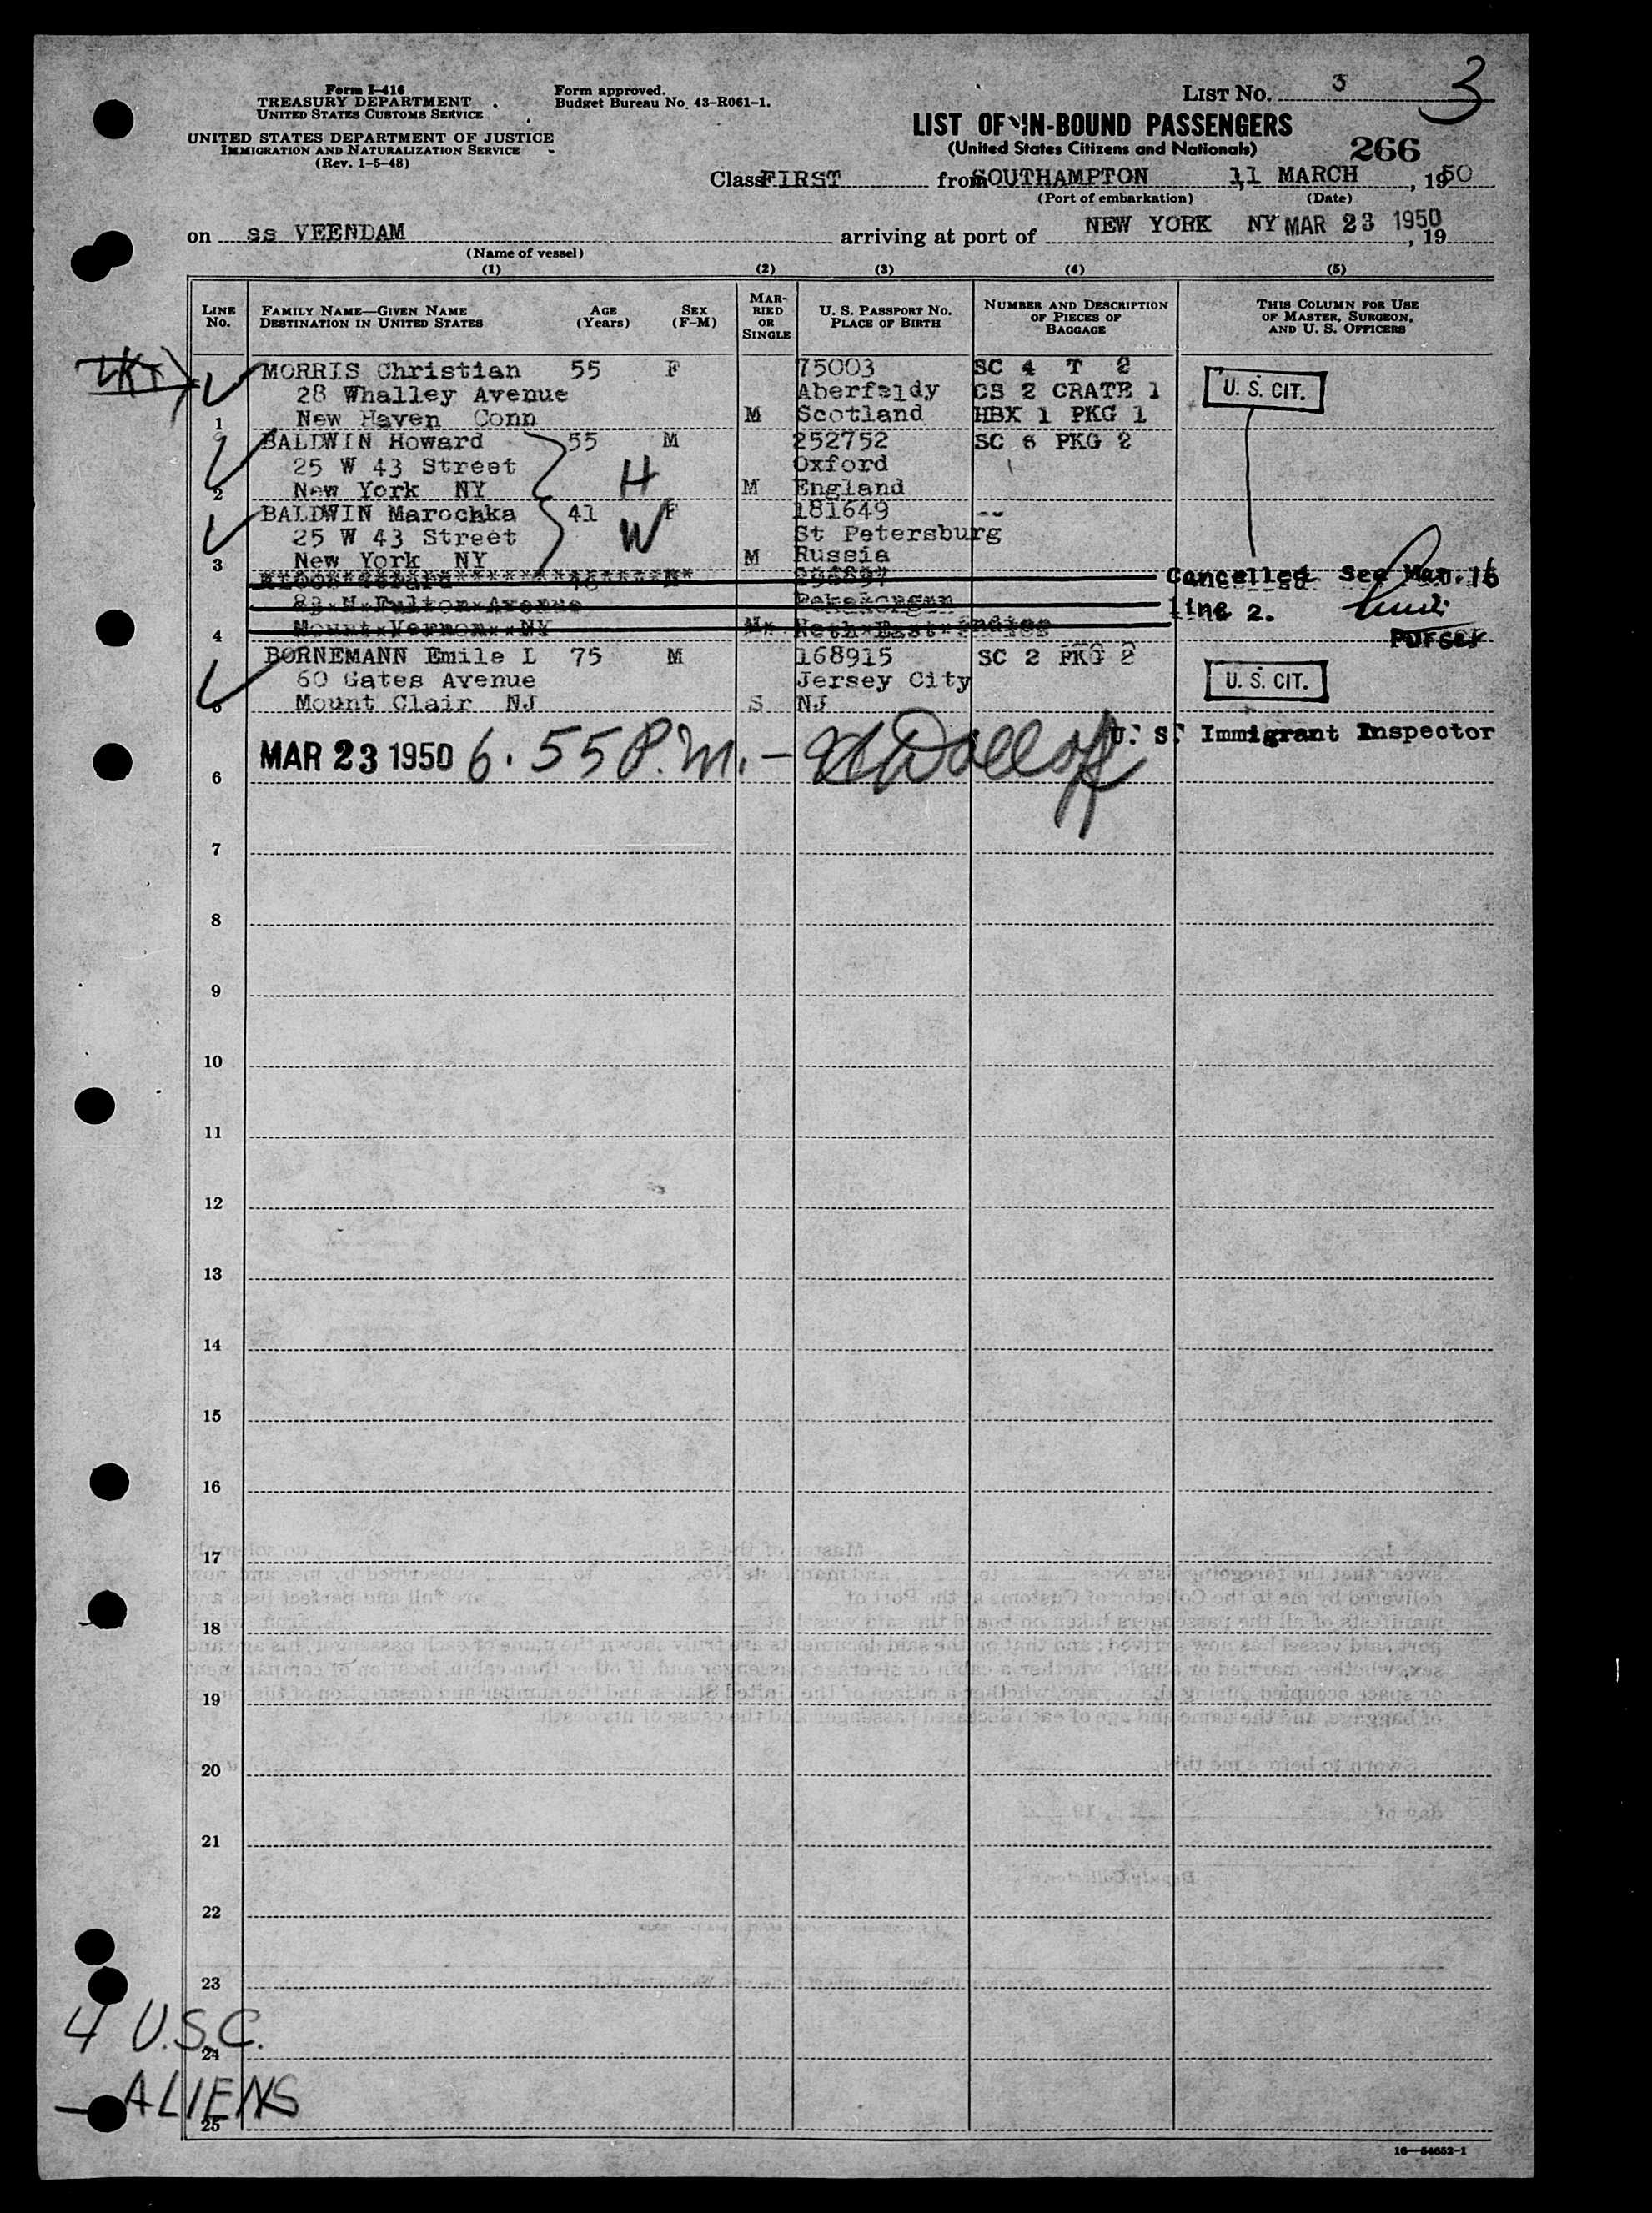 Form I-416
TREASURY DEPARTMENT
UNITED STATES CUSTOMS SERVICE
UNITED STATES DEPARTMENT OF JUSTICE
IMMIGRATION AND NATURALIZATION SERVICE
(Rev. 1-5-48)
Form approved.
Budget Bureau No. 43-R061-1.
LIST No. 3
3
LIST OF IN-BOUND PASSENGERS
(United States Citizens and Nationals)
266
Class FIRST from SOUTHAMPTON 11 MARCH, 1950
(Port of embarkation) (Date)
on ss VEENDAM arriving at port of NEW YORK NY MAR 23 1950, 19
(Name of vessel)
(1) (2) (3) (4) (5)
LINE No.
FAMILY NAME—GIVEN NAME
DESTINATION IN UNITED STATES
AGE (Years)
SEX (F-M)
MARRIED OR SINGLE
U. S. PASSPORT No.
PLACE OF BIRTH
NUMBER AND DESCRIPTION OF PIECES OF BAGGAGE
THIS COLUMN FOR USE OF MASTER, SURGEON, AND U. S. OFFICERS
MORRIS Christian 55 F 75003 SC 4 T 2
28 Whalley Avenue Aberfeldy CS 2 CRATE 1 U. S. CIT.
1 New Haven Conn M Scotland HBX 1 PKG 1
BALDWIN Howard 55 M 252752 SC 6 PKG 2
25 W 43 Street H Oxford
2 New York NY M England
BALDWIN Marochka 41 F 181649 --
25 W 43 Street W St Petersburg
3 New York NY M Russia
Cancelled. See Man. 16
82 N Fulton Avenue Pekalongan line 2.
4 Mount Vernon NY M Neth East Indies Purser
BORNEMANN Emile L 75 M 168915 SC 2 PKG 2
60 Gates Avenue Jersey City U. S. CIT.
5 Mount Clair NJ S NJ
U. S. Immigrant Inspector
MAR 23 1950 6.55 P.M. -
6
7
8
9
10
11
12
13
14
15
16
17
18
19
20
21
22
23
4 U.S.C.
24
— ALIENS
25
16—54652-1